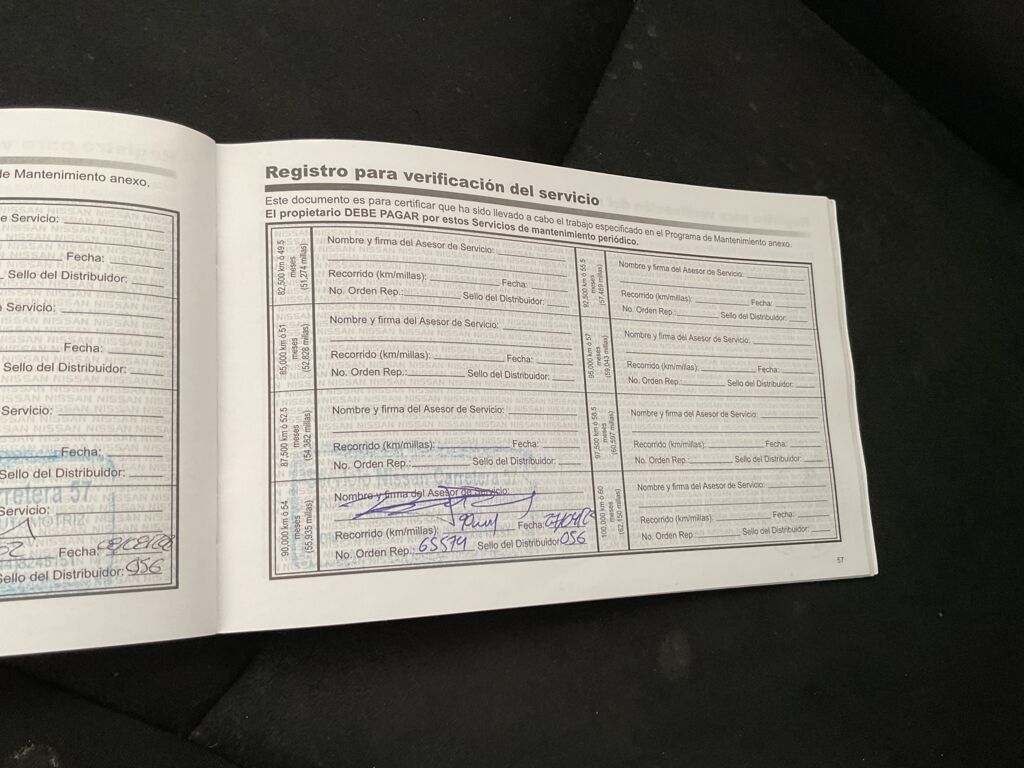 de Mantenimiento anexo.
de Servicio:
Fecha:
Sello del Distribuidor:
Servicio:
Fecha:
Sello del Distribuidor:
Servicio:
Fecha:
Sello del Distribuidor:
57
Servicio:
Fecha:
Sello del Distribuidor: 056
Registro para verificación del servicio
Este documento es para certificar que ha sido llevado a cabo el trabajo especificado en el Programa de Mantenimiento anexo.
El propietario DEBE PAGAR por estos Servicios de mantenimiento periódico.
82,500 km ó 49.5
meses
(51,274 millas)
Nombre y firma del Asesor de Servicio:
Recorrido (km/millas): Fecha:
No. Orden Rep.: Sello del Distribuidor:
85,000 km ó 51
meses
(52,828 millas)
Nombre y firma del Asesor de Servicio:
Recorrido (km/millas): Fecha:
No. Orden Rep.: Sello del Distribuidor:
87,500 km ó 52.5
meses
(54,382 millas)
Nombre y firma del Asesor de Servicio:
Recorrido (km/millas): Fecha:
No. Orden Rep.: Sello del Distribuidor:
90,000 km ó 54
meses
(55,935 millas)
Nombre y firma del Asesor de Servicio:
Recorrido (km/millas): Fecha:
No. Orden Rep.: 65579 Sello del Distribuidor: 056
92,500 km ó 55.5
meses
(57,489 millas)
Nombre y firma del Asesor de Servicio:
Recorrido (km/millas): Fecha:
No. Orden Rep.: Sello del Distribuidor:
95,000 km ó 57
meses
(59,043 millas)
Nombre y firma del Asesor de Servicio:
Recorrido (km/millas): Fecha:
No. Orden Rep.: Sello del Distribuidor:
97,500 km ó 58.5
meses
(60,597 millas)
Nombre y firma del Asesor de Servicio:
Recorrido (km/millas): Fecha:
No. Orden Rep.: Sello del Distribuidor:
100,000 km ó 60
meses
(62,150 millas)
Nombre y firma del Asesor de Servicio:
Recorrido (km/millas): Fecha:
No. Orden Rep.: Sello del Distribuidor:
57